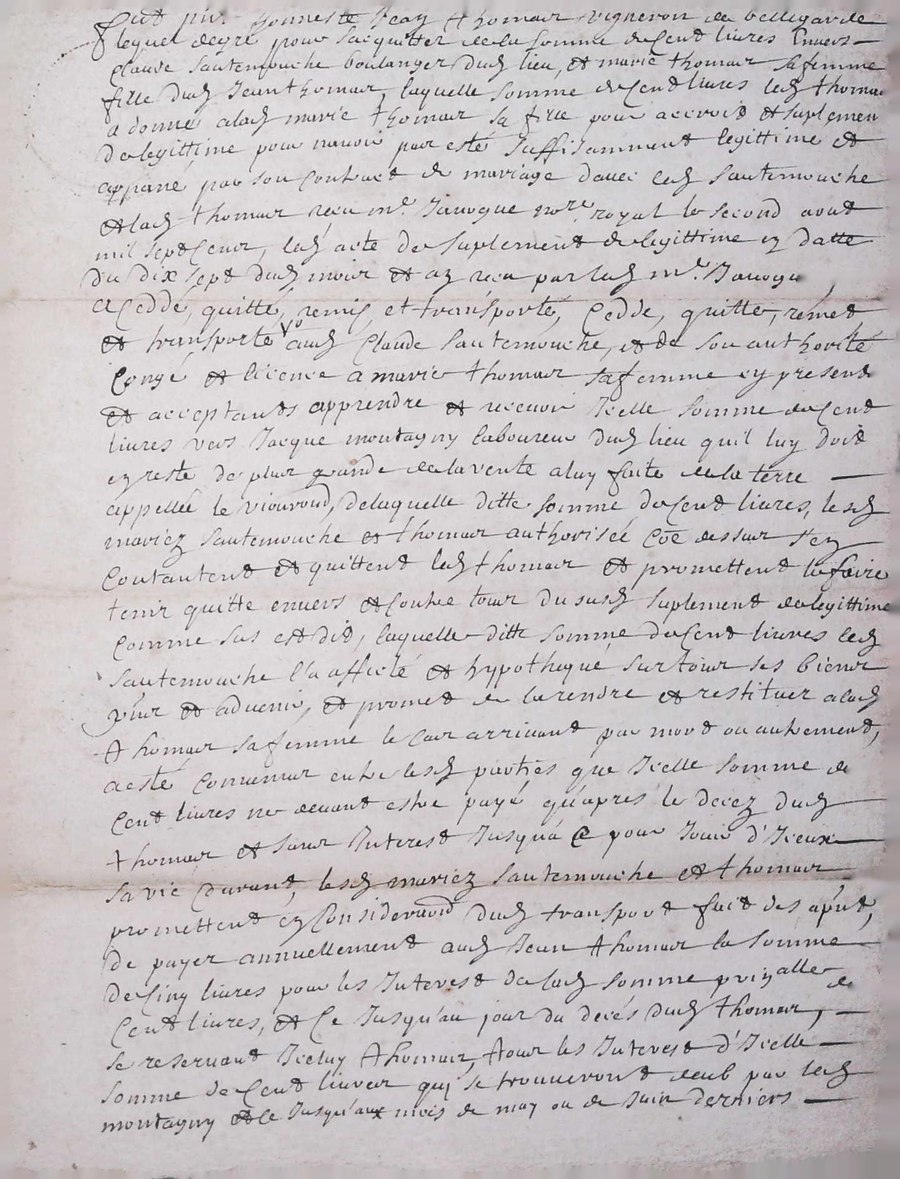 fut pnt. honneste Jean thomas vigneron de bellegarde
lequel de gré pour sacquitter de la somme de Cent livres Envers
Claude Sautemouche boulanger dud lieu, et marie thomas sa femme
fille dud Jean thomas, laquelle somme de Cent livres led thomas
a donné alad marie thomas sa fille pour accroid et suplemen
de legittime pour nauoir pas esté suffisamment legittimé et
appané par son Contract de mariage dauec led Sautemouche
et lad thomas receu me. Jauogue nore. royal le second aoud
mil sept Cens, led acte de suplement de legittime en datte
du dix sept dud mois et an receu par led me. Jauogue
a Cedde, quitté, remis et transporté, Cedde, quitte, remet
et transporte aud Claude Sautemouche, et de son authorité
Congé et licence a marie thomas sa femme cy present
et acceptants apprendre et receuoir Icelle somme de Cent
livres vers Jacque montagny laboureur dud lieu quil luy doit
en reste de plus grande de la vente a luy faite de la terre
appellée le, de laquelle ditte somme de Cent livres, lesd
mariez Sautemouche et thomas authorisée Coe dessus s'en
Contantent et quittent led thomas et promettent le faire
tenir quitte envers et Contre tous du susd suplement de legittime
Comme sus est dit, laquelle ditte somme de Cent livres led
Sautemouche l'a affecté et hypothequé sur tous ses biens
pnts et aduenir, et promet de la rendre et restituer alad
thomas sa femme le Cas arriuant par mort ou autrement,
a esté Conuenus entre lesd parties que Icelle somme de
Cent livres ne deuant estre payé qu'apres le decez dud
thomas et sans Interest Jusqua Ce pour Jouir d'Iceux
sa vie durant, lesd mariez Sautemouche et thomas
promettent en Consideraon dud transport fait des aput,
de payer annuellement aud Jean thomas la somme
de Cinq livres pour les Interest de lad somme prinalle de
Cent livres, et Ce Jusqu'au jour du decés dud thomas,
se reservant Iceluy thomas, tous les Interest d'Icelle
somme de Cent livres qui se trouueront deub par led
montagny et Ce Jusqu'aux mois de may ou de Juin derniers